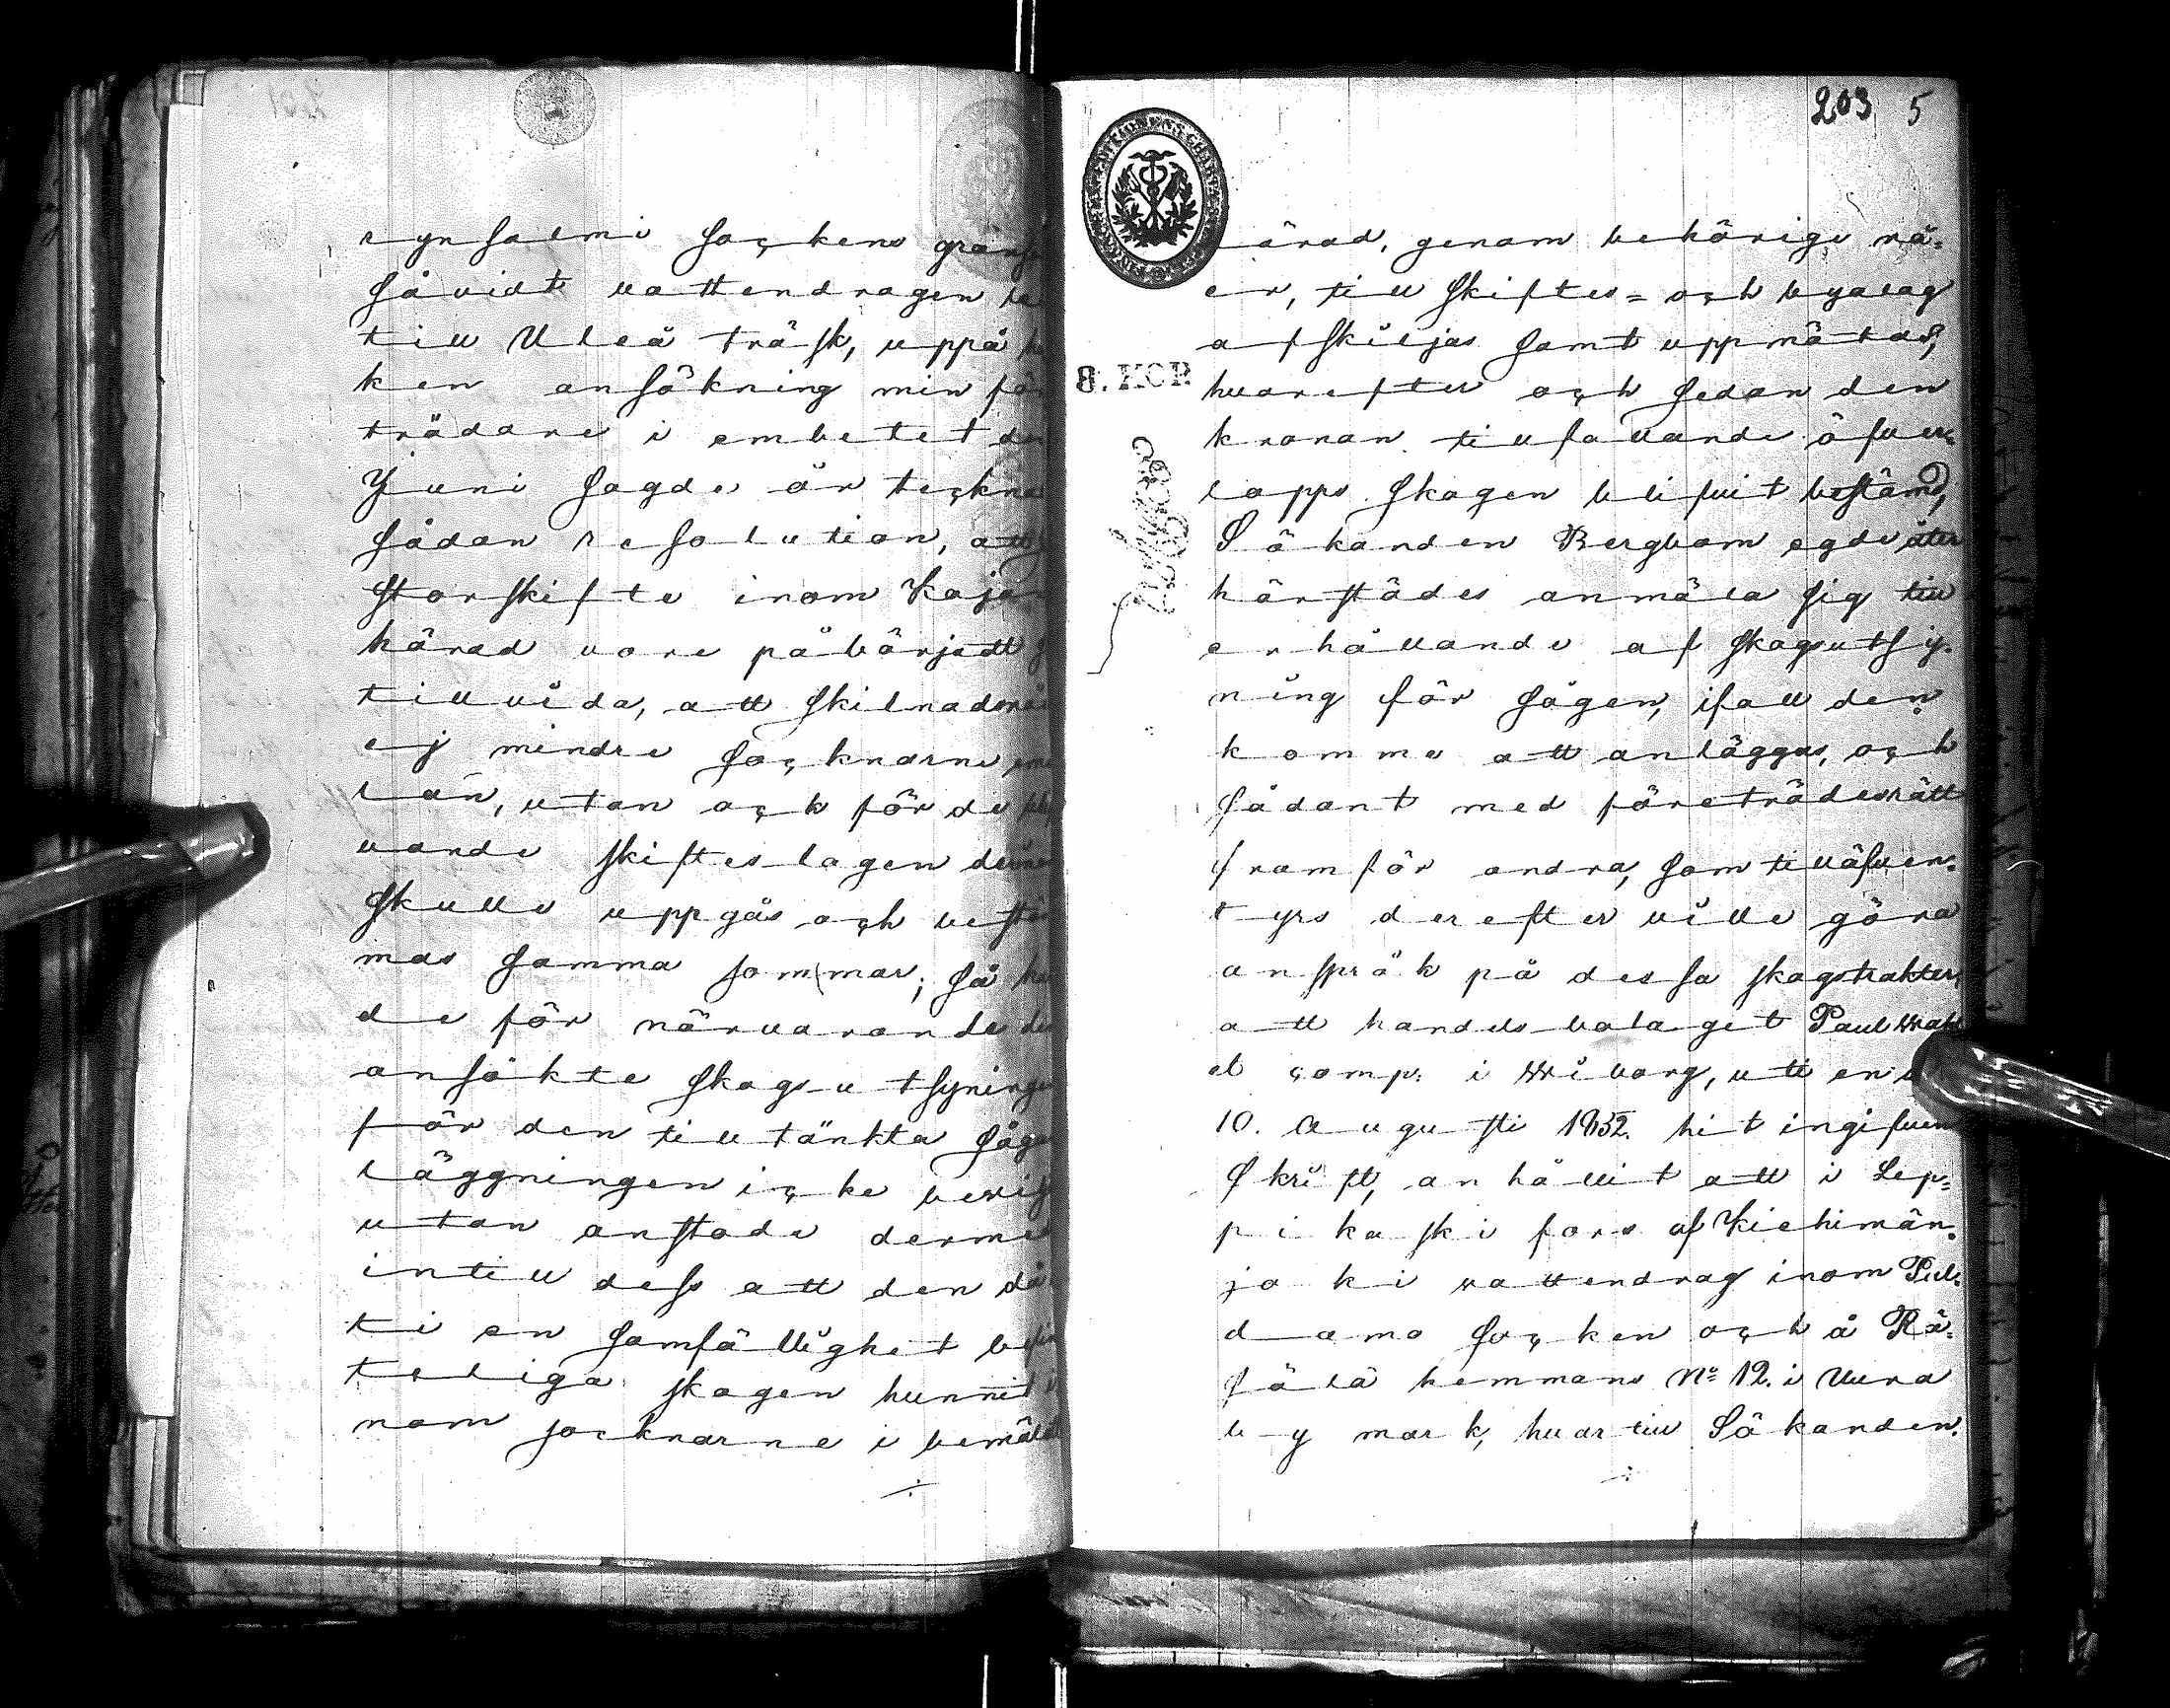 rynsalmi Sockens gräns
såvidt vattendragen
till Uleå träsk, uppå
ken ansökning min för
trädare i embetet den
Juni sagde år teckna
sådan resolution, att
storskifte inom Kajan
härad vore påbörjadt
tillvida, att skilnadsrå
ej mindre Socknarne
lan, utan ock för de
vande skifteslagen
skulle uppgås och bestä
mas samma sommar; så
de för närvarande
ansökte skogsutsyninge
för den tilltänkta såg
läggningen icke
utan anstode dermed
intill dess att den då
ti en samfällighet
teliga skogen hunnit i
nom socknarne i bemält
÷
203 5
8. KOP.
ärad, genom behörige rå=
er, till skiftes= och byalag
afskiljas samt uppmätas,
hvarefter och sedan den
kronan tillfallande öfver=
lopps skogen blifvit bestämd,
Sökanden Bergbom egde åter
härstädes anmäla sig till
erhållande af skogsutsy=
ning för sågen, ifall den
komme att anläggas, och
sådant med företrädesrätt
framför andra, som tilläfven=
tyrs derefter ville göra
anspråk på dessa skogstrakter,
att handelsbolaget Paul Wahl
et Comp: i Wiborg, uti en
10. Augusti 1852. hit ingifven
Skrift, anhållit att i Lep=
pikoski fors af Kiehimän=
joki vattendrag inom Pul=
damo Socken och å Rä=
sälä hemmans No 12. i Uura
by mark, hvartill Sökanden.
÷